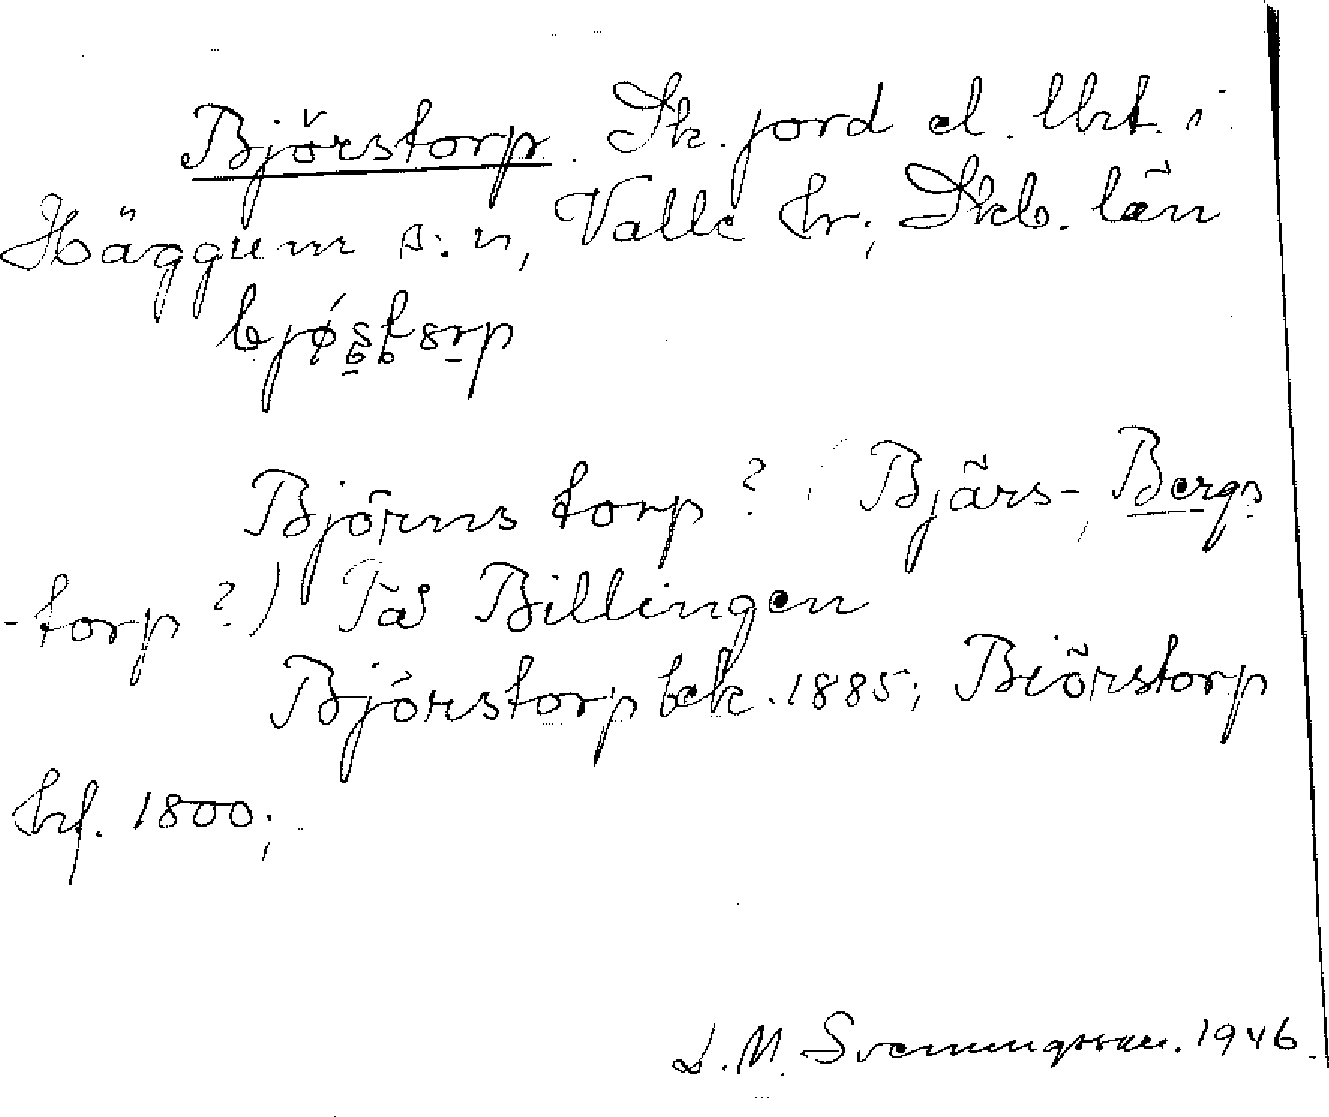 Björstorp. Sk. jord el. lht. i
Häggum s:n, Valle hr; Skb. län
Björns torp? (Bjärs-, Bergs
-torp?) På Billingen
Björstorp bek. 1885; Biörstorp
hrf. 1800;
L. M. Svenungsson. 1946.